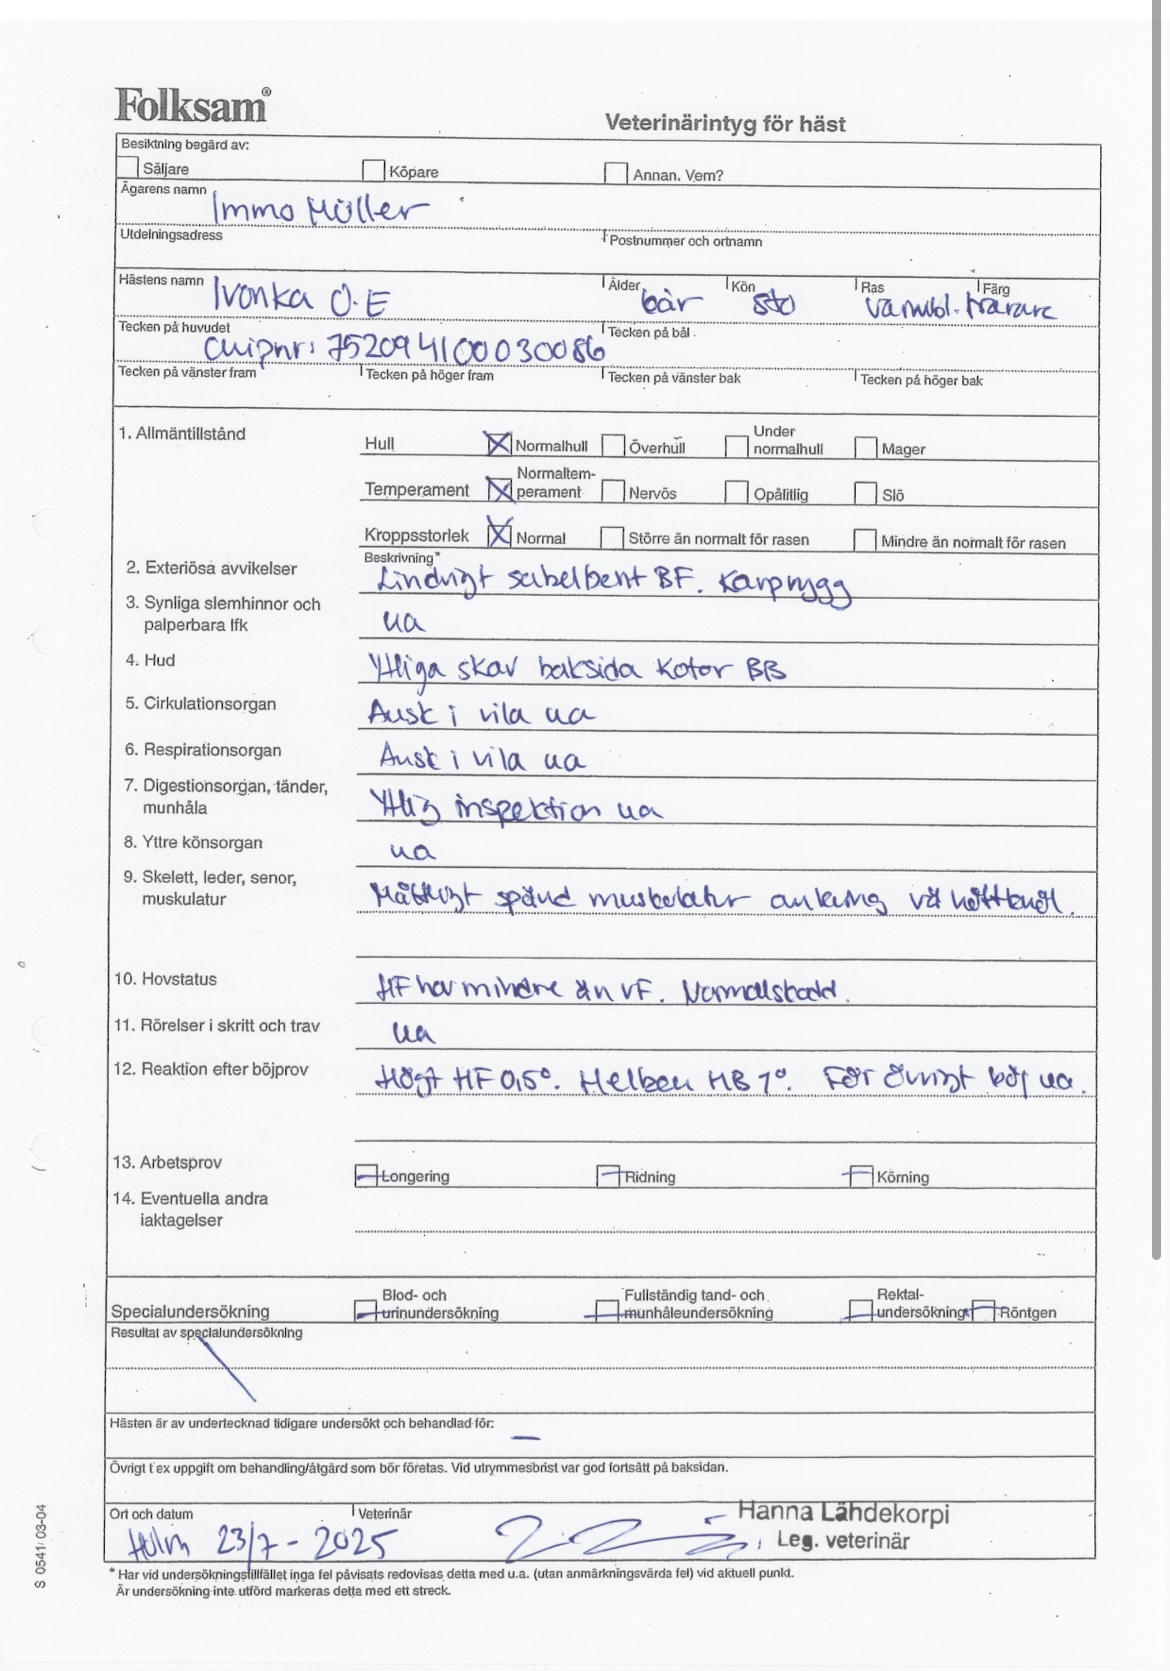 Folksam®
Veterinärintyg för häst
Besiktning begärd av:
Säljare Köpare Annan. Vem?
Ägarens namn
Immo Müller
Utdelningsadress Postnummer och ortnamn
Hästens namn Ivonka Ö.E Ålder 6år Kön sto Ras varmbl. travare Färg
Tecken på huvudet Tecken på bål
Chipnr: 752094100030086
Tecken på vänster fram Tecken på höger fram Tecken på vänster bak Tecken på höger bak
1. Allmäntillstånd Hull Normalhull Överhull Under normalhull Mager
Temperament Normaltem-perament Nervös Opålitlig Slö
Kroppsstorlek Normal Större än normalt för rasen Mindre än normalt för rasen
Beskrivning*
2. Exteriösa avvikelser Lindrigt sabelbent BF. Karprygg
3. Synliga slemhinnor och
palperbara lfk ua
4. Hud Ytliga skav baksida kotor BB
5. Cirkulationsorgan Ausk i vila ua
6. Respirationsorgan Ausk i vila ua
7. Digestionsorgan, tänder,
munhåla Ytlig inspektion ua
8. Yttre könsorgan ua
9. Skelett, leder, senor,
muskulatur Måttligt spänd muskulatur omkring vä höftknöl.
10. Hovstatus HF hov mindre än VF. Normalskodd.
11. Rörelser i skritt och trav ua
12. Reaktion efter böjprov Högt HF 0,5°. Helben HB 1°. För övrigt böj ua.
13. Arbetsprov Longering Ridning Körning
14. Eventuella andra
iaktagelser
Specialundersökning Blod- och urinundersökning Fullständig tand- och munhåleundersökning Rektal-undersökning Röntgen
Resultat av specialundersökning
Hästen är av undertecknad tidigare undersökt och behandlad för: –
Övrigt t ex uppgift om behandling/åtgärd som bör företas. Vid utrymmesbrist var god fortsätt på baksidan.
Ort och datum Veterinär
23/7 - 2025
Hanna Lähdekorpi
Leg. veterinär
* Har vid undersökningstillfället inga fel påvisats redovisas detta med u.a. (utan anmärkningsvärda fel) vid aktuell punkt.
Är undersökning inte utförd markeras detta med ett streck.
S 0541 03-04